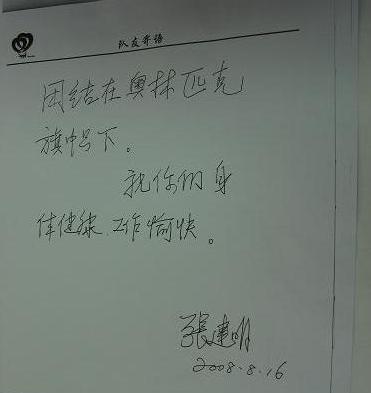 队友寄语
团结在奥林匹克
旗帜下。
祝你们身
体健康、工作愉快。
张建明
2008.8.16